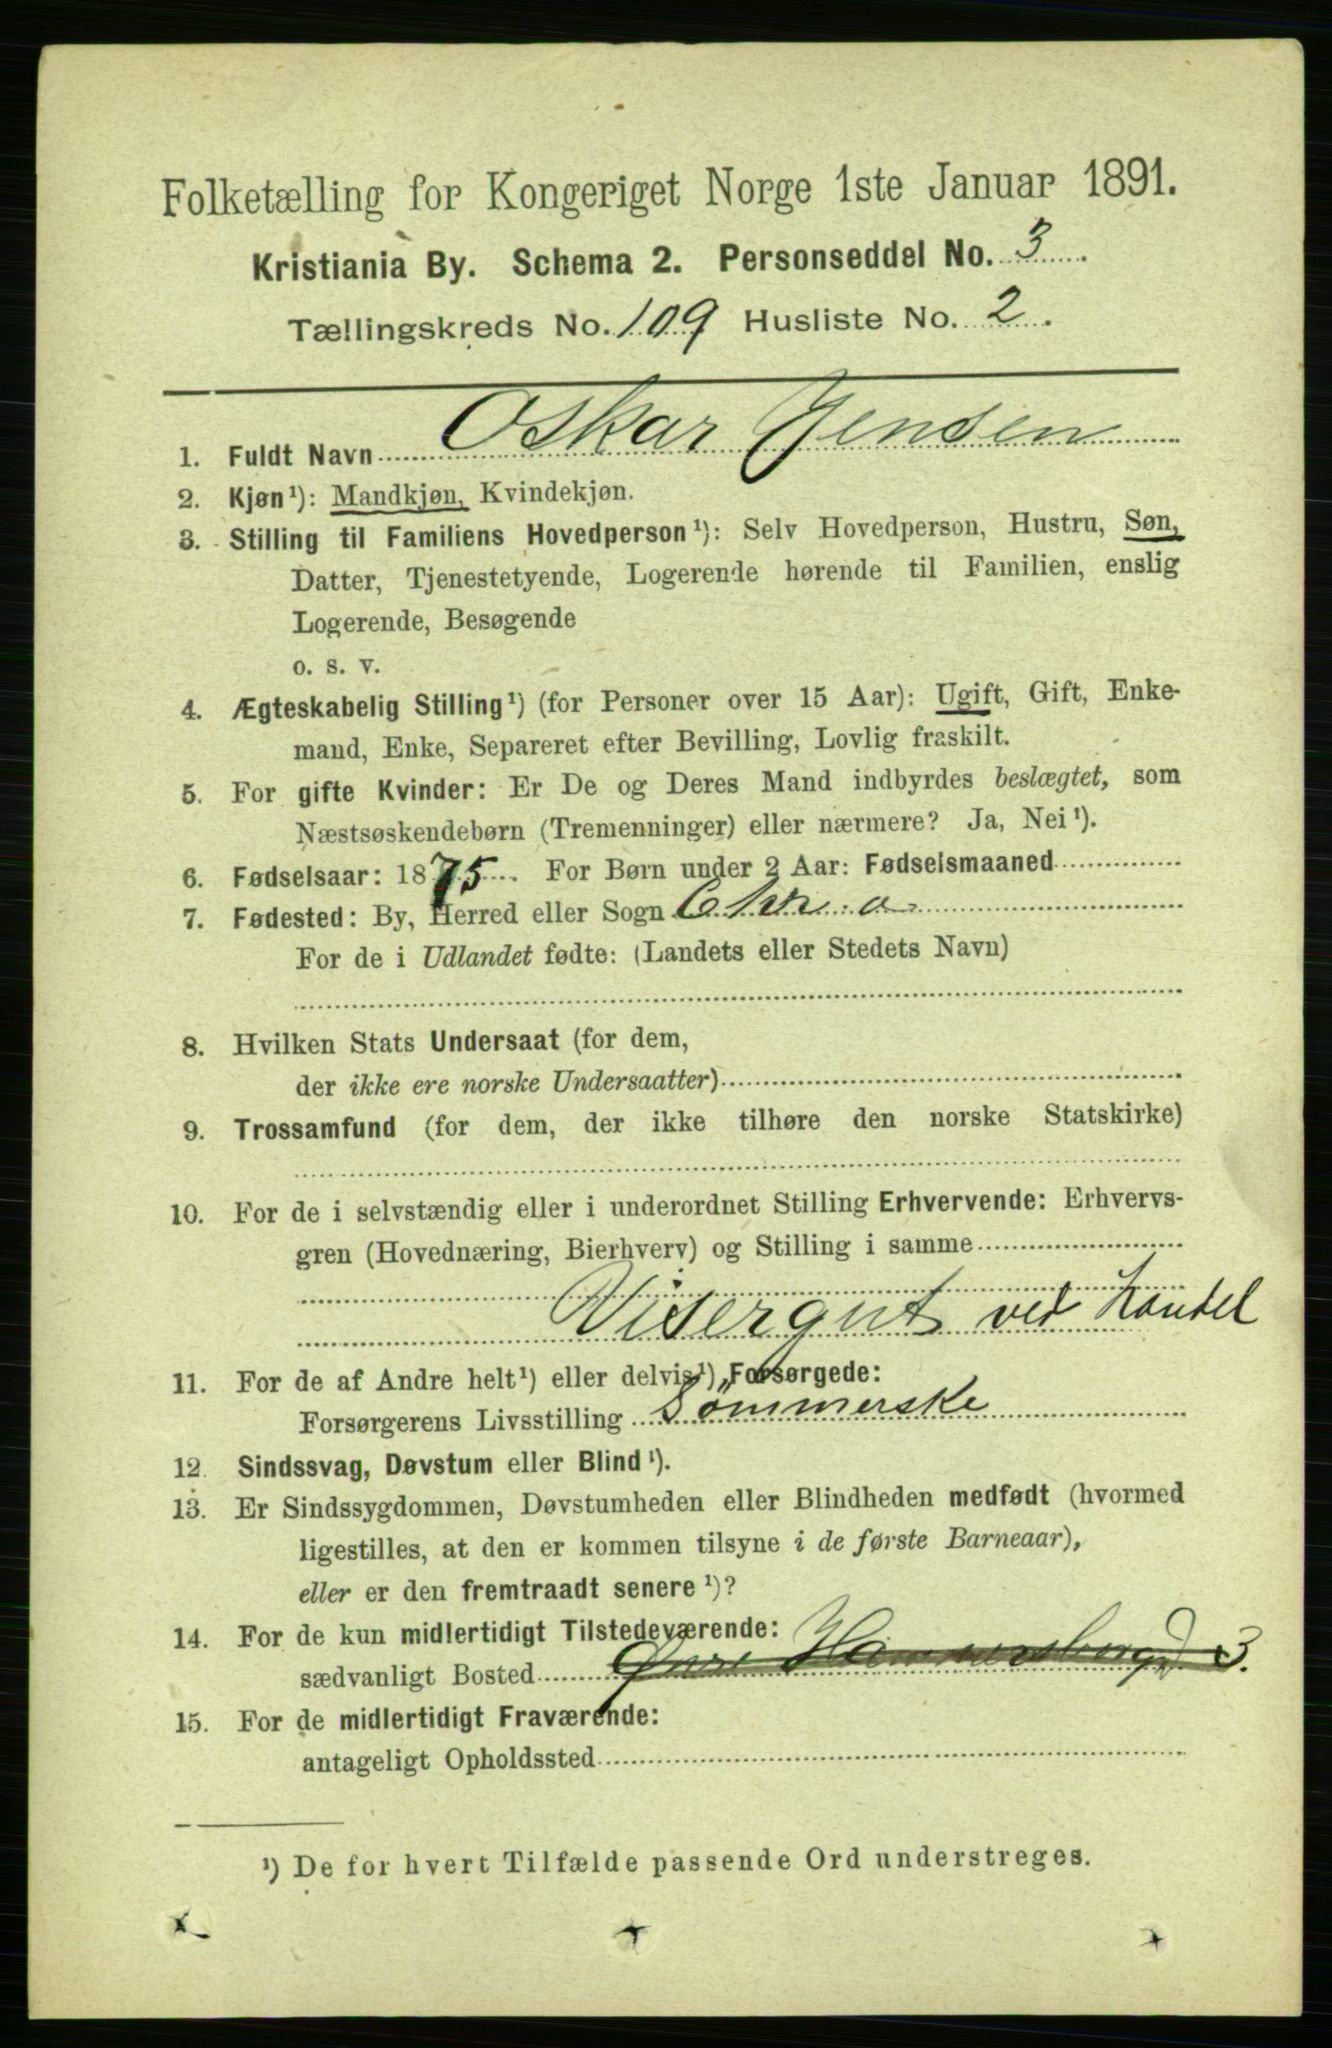 Folketælling for Kongeriget Norge 1ste Januar 1891.
Kristiania By. Schema 2. Personseddel No. 3
Tællingskreds No. 109 Husliste No. 2
1. Fuldt Navn Oskar Jensen
2. Kjøn¹): Mandkjøn, Kvindekjøn.
3. Stilling til Familiens Hovedperson¹): Selv Hovedperson, Hustru, Søn,
Datter, Tjenestetyende, Logerende hørende til Familien, enslig
Logerende, Besøgende
o. s. v.
4. Ægteskabelig Stilling¹) (for Personer over 15 Aar): Ugift, Gift, Enke-
mand, Enke, Separeret efter Bevilling, Lovlig fraskilt.
5. For gifte Kvinder: Er De og Deres Mand indbyrdes beslægtet, som
Næstsøskendebørn (Tremenninger) eller nærmere? Ja, Nei¹).
6. Fødselsaar: 1875. For Børn under 2 Aar: Fødselsmaaned
7. Fødested: By, Herred eller Sogn Chr.a
For de i Udlandet fødte: (Landets eller Stedets Navn)
8. Hvilken Stats Undersaat (for dem,
der ikke ere norske Undersaatter)
9. Trossamfund (for dem, der ikke tilhøre den norske Statskirke)
10. For de i selvstændig eller i underordnet Stilling Erhvervende: Erhvervs-
gren (Hovednæring, Bierhverv) og Stilling i samme
Visergut ved Handel
11. For de af Andre helt¹) eller delvis¹) Forsørgede:
Forsørgerens Livsstilling Sömmerske
12. Sindssvag, Døvstum eller Blind¹).
13. Er Sindssygdommen, Døvstumheden eller Blindheden medfødt (hvormed
ligestilles, at den er kommen tilsyne i de første Barneaar),
eller er den fremtraadt senere¹)?
14. For de kun midlertidigt Tilstedeværende:
sædvanligt Bosted Øvre Hammersborgd 3.
15. For de midlertidigt Fraværende:
antageligt Opholdssted
¹) De for hvert Tilfælde passende Ord understreges.